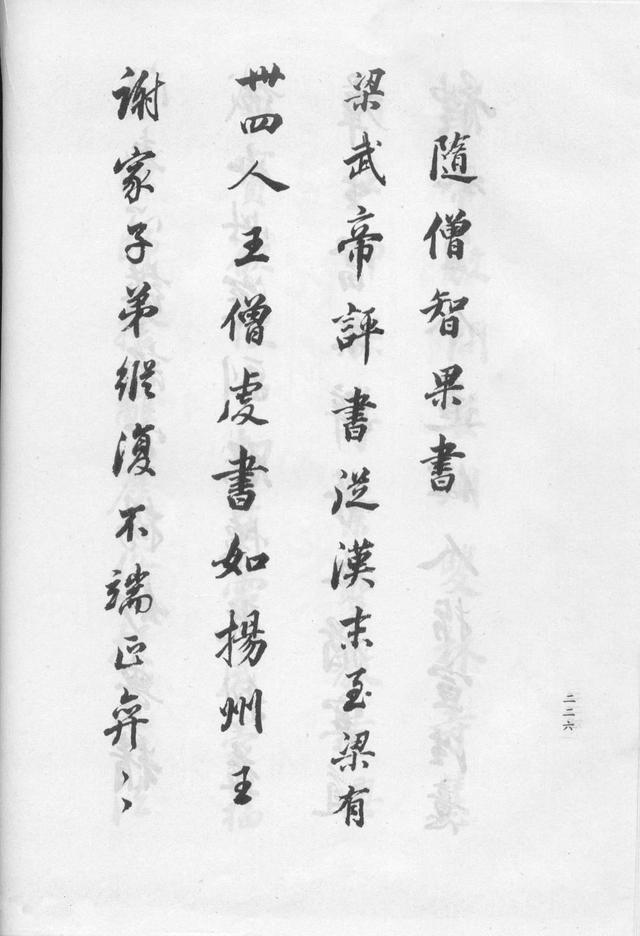 隨僧智果書
梁武帝評書從漢末至梁有
卅四人王僧虔書如揚州王
謝家子弟縱復不端正奕〻
二二六